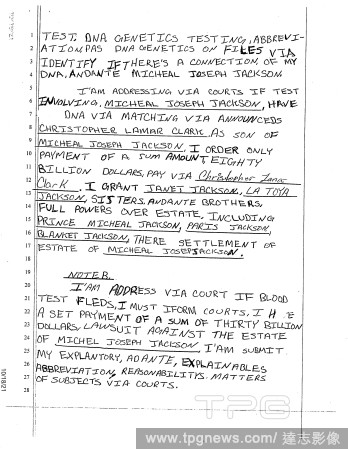 TEST, DNA GENETICS TESTING, ABBREVI-
ATION, PAS DNA GENETICS ON FILES VIA
IDENTIFY IF THERE'S A CONNECTION OF MY
DNA, ANDANTE MICHEAL JOSEPH JACKSON
I'AM ADDRESSING VIA COURTS IF TEST
INVOLVING, MICHEAL JOSEPH JACKSON, HAVE
DNA VIA MATCHING VIA ANNOUNCEDS
CHRISTOPHER LAMAR CLARK. AS SON OF
MICHEAL JOSEPH JACKSON. I ORDER ONLY
PAYMENT OF A SUM AMOUNT EIGHTY
BILLION DOLLARS, PAY VIA Christopher
Clark. I GRANT JANET JACKSON, LA TOYA
JACKSON, SISTERS, ANDANTE BROTHERS,
FULL POWERS OVER ESTATE, INCLUDING
PRINCE MICHEAL JACKSON, PARIS JACKSON,
BLANKET JACKSON, THERE SETTLEMENT OF
ESTATE OF MICHEAL JOSEPJACKSON.
NOTE B.
I'AM ADDRESS VIA COURT IF BLOOD
TEST FLEDS, I MUST IFORM COURTS, I
A SET PAYMENT OF A SUM OF THIRTY BILLION
DOLLARS, LAWSUIT AGAINST THE ESTATE
OF MICHEL JOSEPH JACKSON, I'AM SUBMIT
MY EXPLANTORY, ADANTE, EXPLAINABLES
ABBREVIATION, REASONABILITYS. MATTERS
OF SUBJECTS VIA COURTS.
1
2
3
4
5
6
7
8
9
10
11
12
13
14
15
16
17
18
19
20
21
22
23
24
25
26
27
28
10/18/21
TPG
www.tpgnews.com / 達志影像